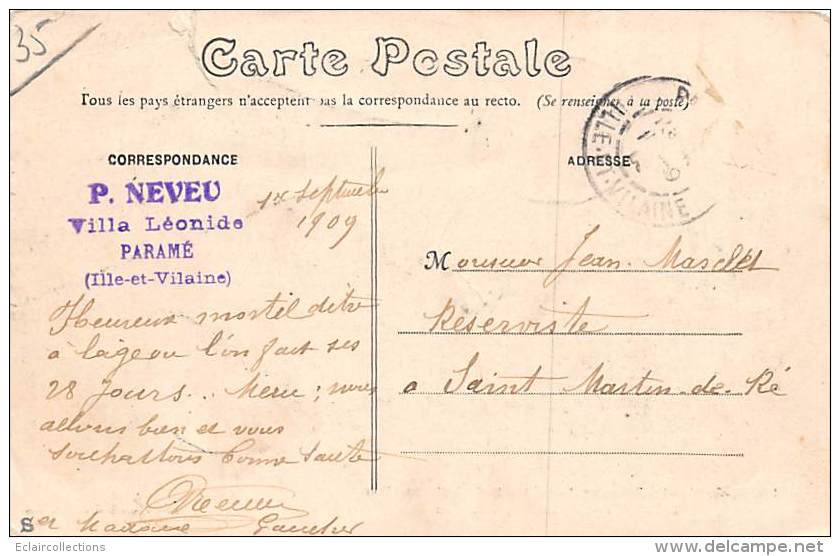 35
Carte Postale
Tous les pays étrangers n'acceptent pas la correspondance au recto. (Se renseigner à la poste)
CORRESPONDANCE
ADRESSE
P. NEVEU
Villa Léonide
PARAMÉ
(Ille-et-Vilaine)
Septembre
1909
ILLE-ET-VILAINE
Monsieur Jean Masclet
Réserviste
a Saint Martin-de-Ré
Heureux mortel detre
a lage ou l'on fait ses
28 Jours.. Merci; nous
allons bien et vous
souhaitons bonne santé
Neveu
et Madame Gaucher
S
Eclaircollections
www.delcampe.net